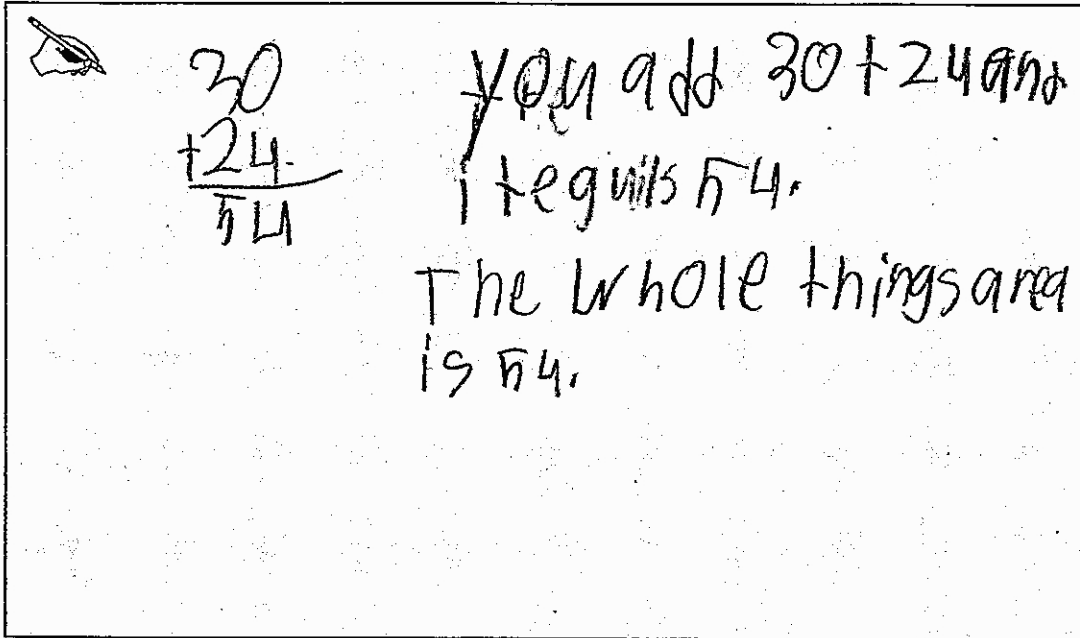 30
+24
54
you add 30+24 and
it equils 54.
The whole things area
is 54.